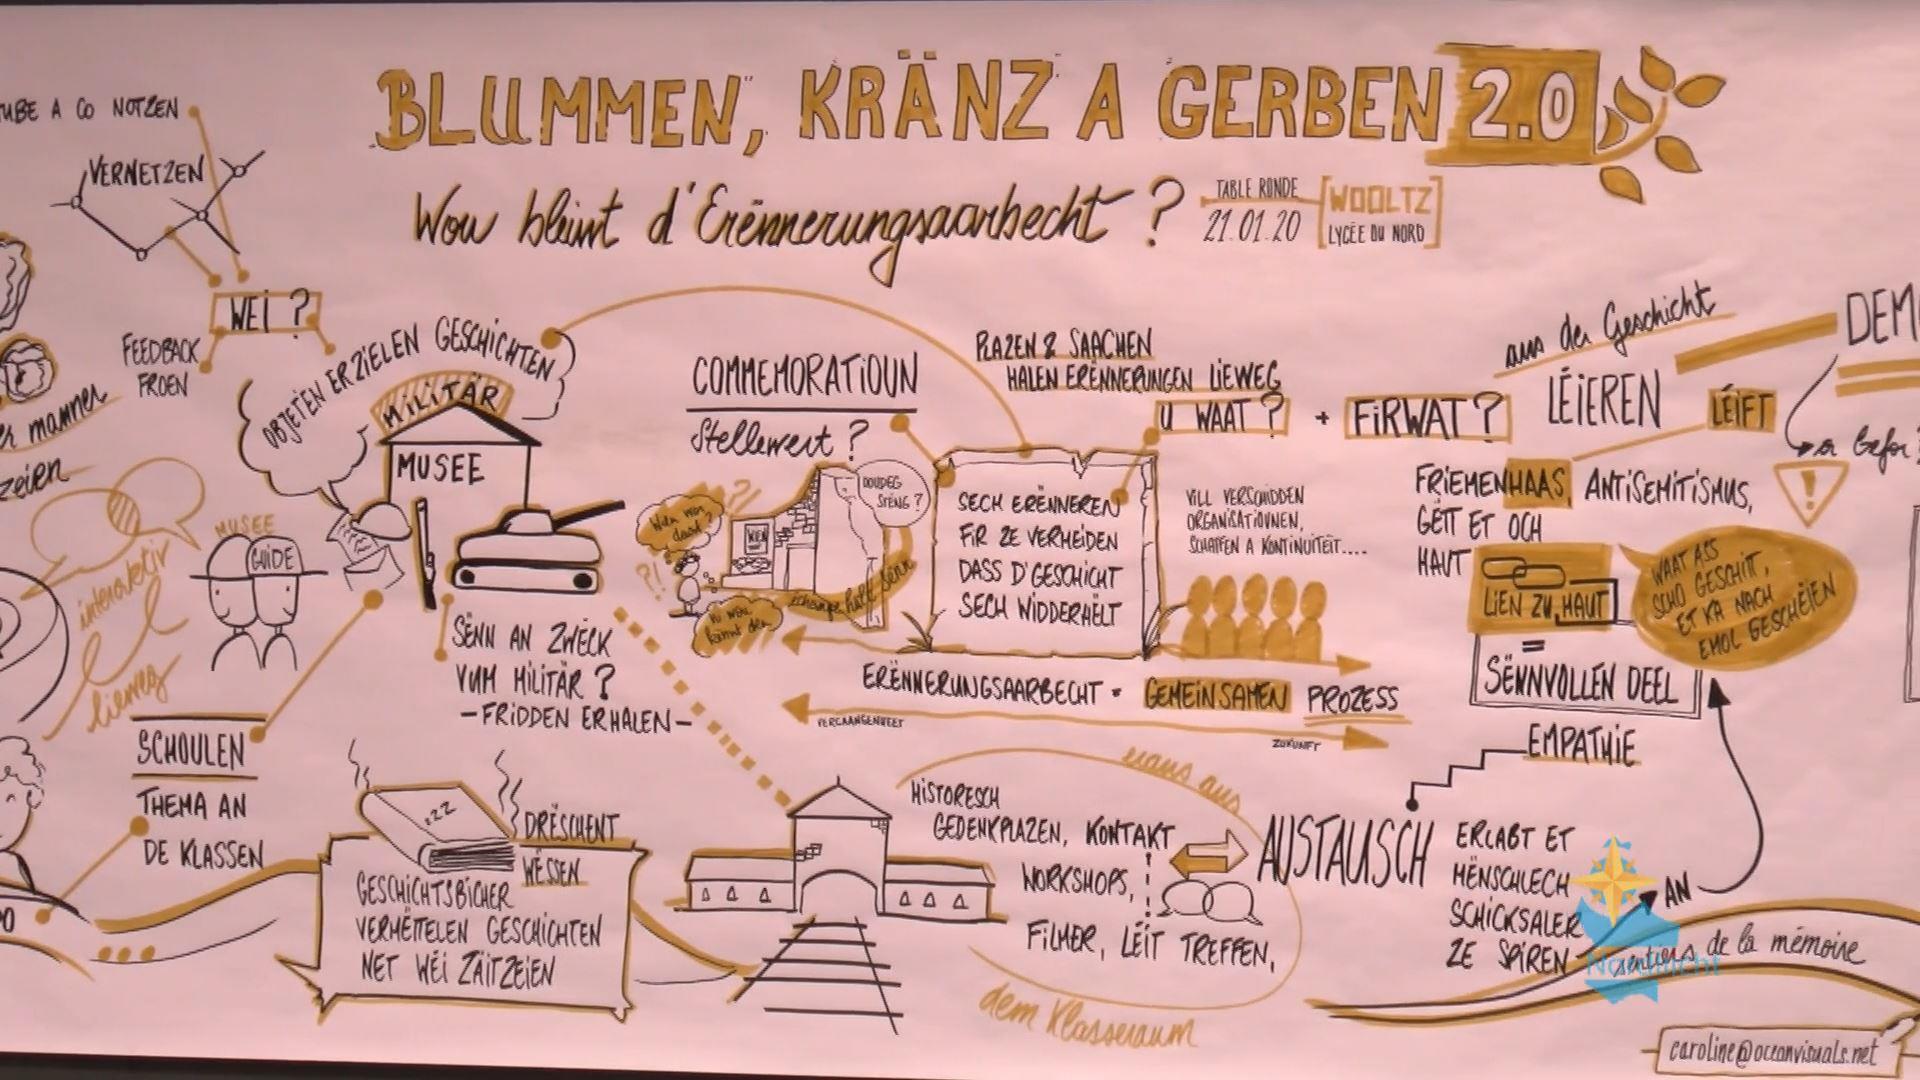 BLUMMEN, KRÄNZ A GERBEN 2.0
Wou bleiwt d'Erënnerungsaarbecht ?
TABLE RONDE
21.01.20
WOOLTZ
LYCÉE DU NORD
A CO NOTZEN
VERNETZEN
WEI ?
FEEDBACK
FROEN
OBJETEN ERZIELEN GESCHICHTEN
MILITÄR
MUSEE
MUSEE
GUIDE
interaktiv
lieweg
SCHOULEN
THEMA AN
DE KLASSEN
SËNN AN ZWECK
VUM MILITÄR ?
-FRIDDEN ERHALEN-
ZZZ
DRËSCHENT
WËSSEN
GESCHICHTSBICHER
VERMËTTELEN GESCHICHTEN
NET WÉI ZÄITZEIEN
COMMEMORATIOUN
Stellewert ?
DOUDEG
STENG ?
PLAZEN & SAACHEN
HALEN ERËNNERUNGEN LIEWEG
U WAAT ? + FIRWAT ?
SECH ERËNNEREN
FIR ZE VERMEIDEN
DASS D'GESCHICHT
SECH WIDDERHËLT
VILL VERSCHIDDEN
ORGANISATIOUNEN,
SCHAFFEN A KONTINUITEIT....
ERËNNERUNGSAARBECHT = GEMEINSAMEN PROZESS
VERGAANGENHEET
ZUKUNFT
HISTORESCH
GEDENKPLAZEN, KONTAKT
WORKSHOPS,
FILMER, LËIT TREFFEN,
eraus aus
dem Klasseraum
AUSTAUSCH
ERLABT ET
MËNSCHLECH
SCHICKSALER
ZE SPIREN
AN
EMPATHIE
aus der Geschicht
LÉIEREN
LÉIFT
FRIEMENHAAS, ANTISEMITISMUS,
GËTT ET OCH
HAUT
LIEN ZU HAUT
=
SËNNVOLLEN DEEL
!
WAAT ASS
SCHO GESCHITT,
ET KA NACH
EMOL GESCHÉIEN
sentiers de la mémoire
Nordliicht
caroline@oceanvisuals.net